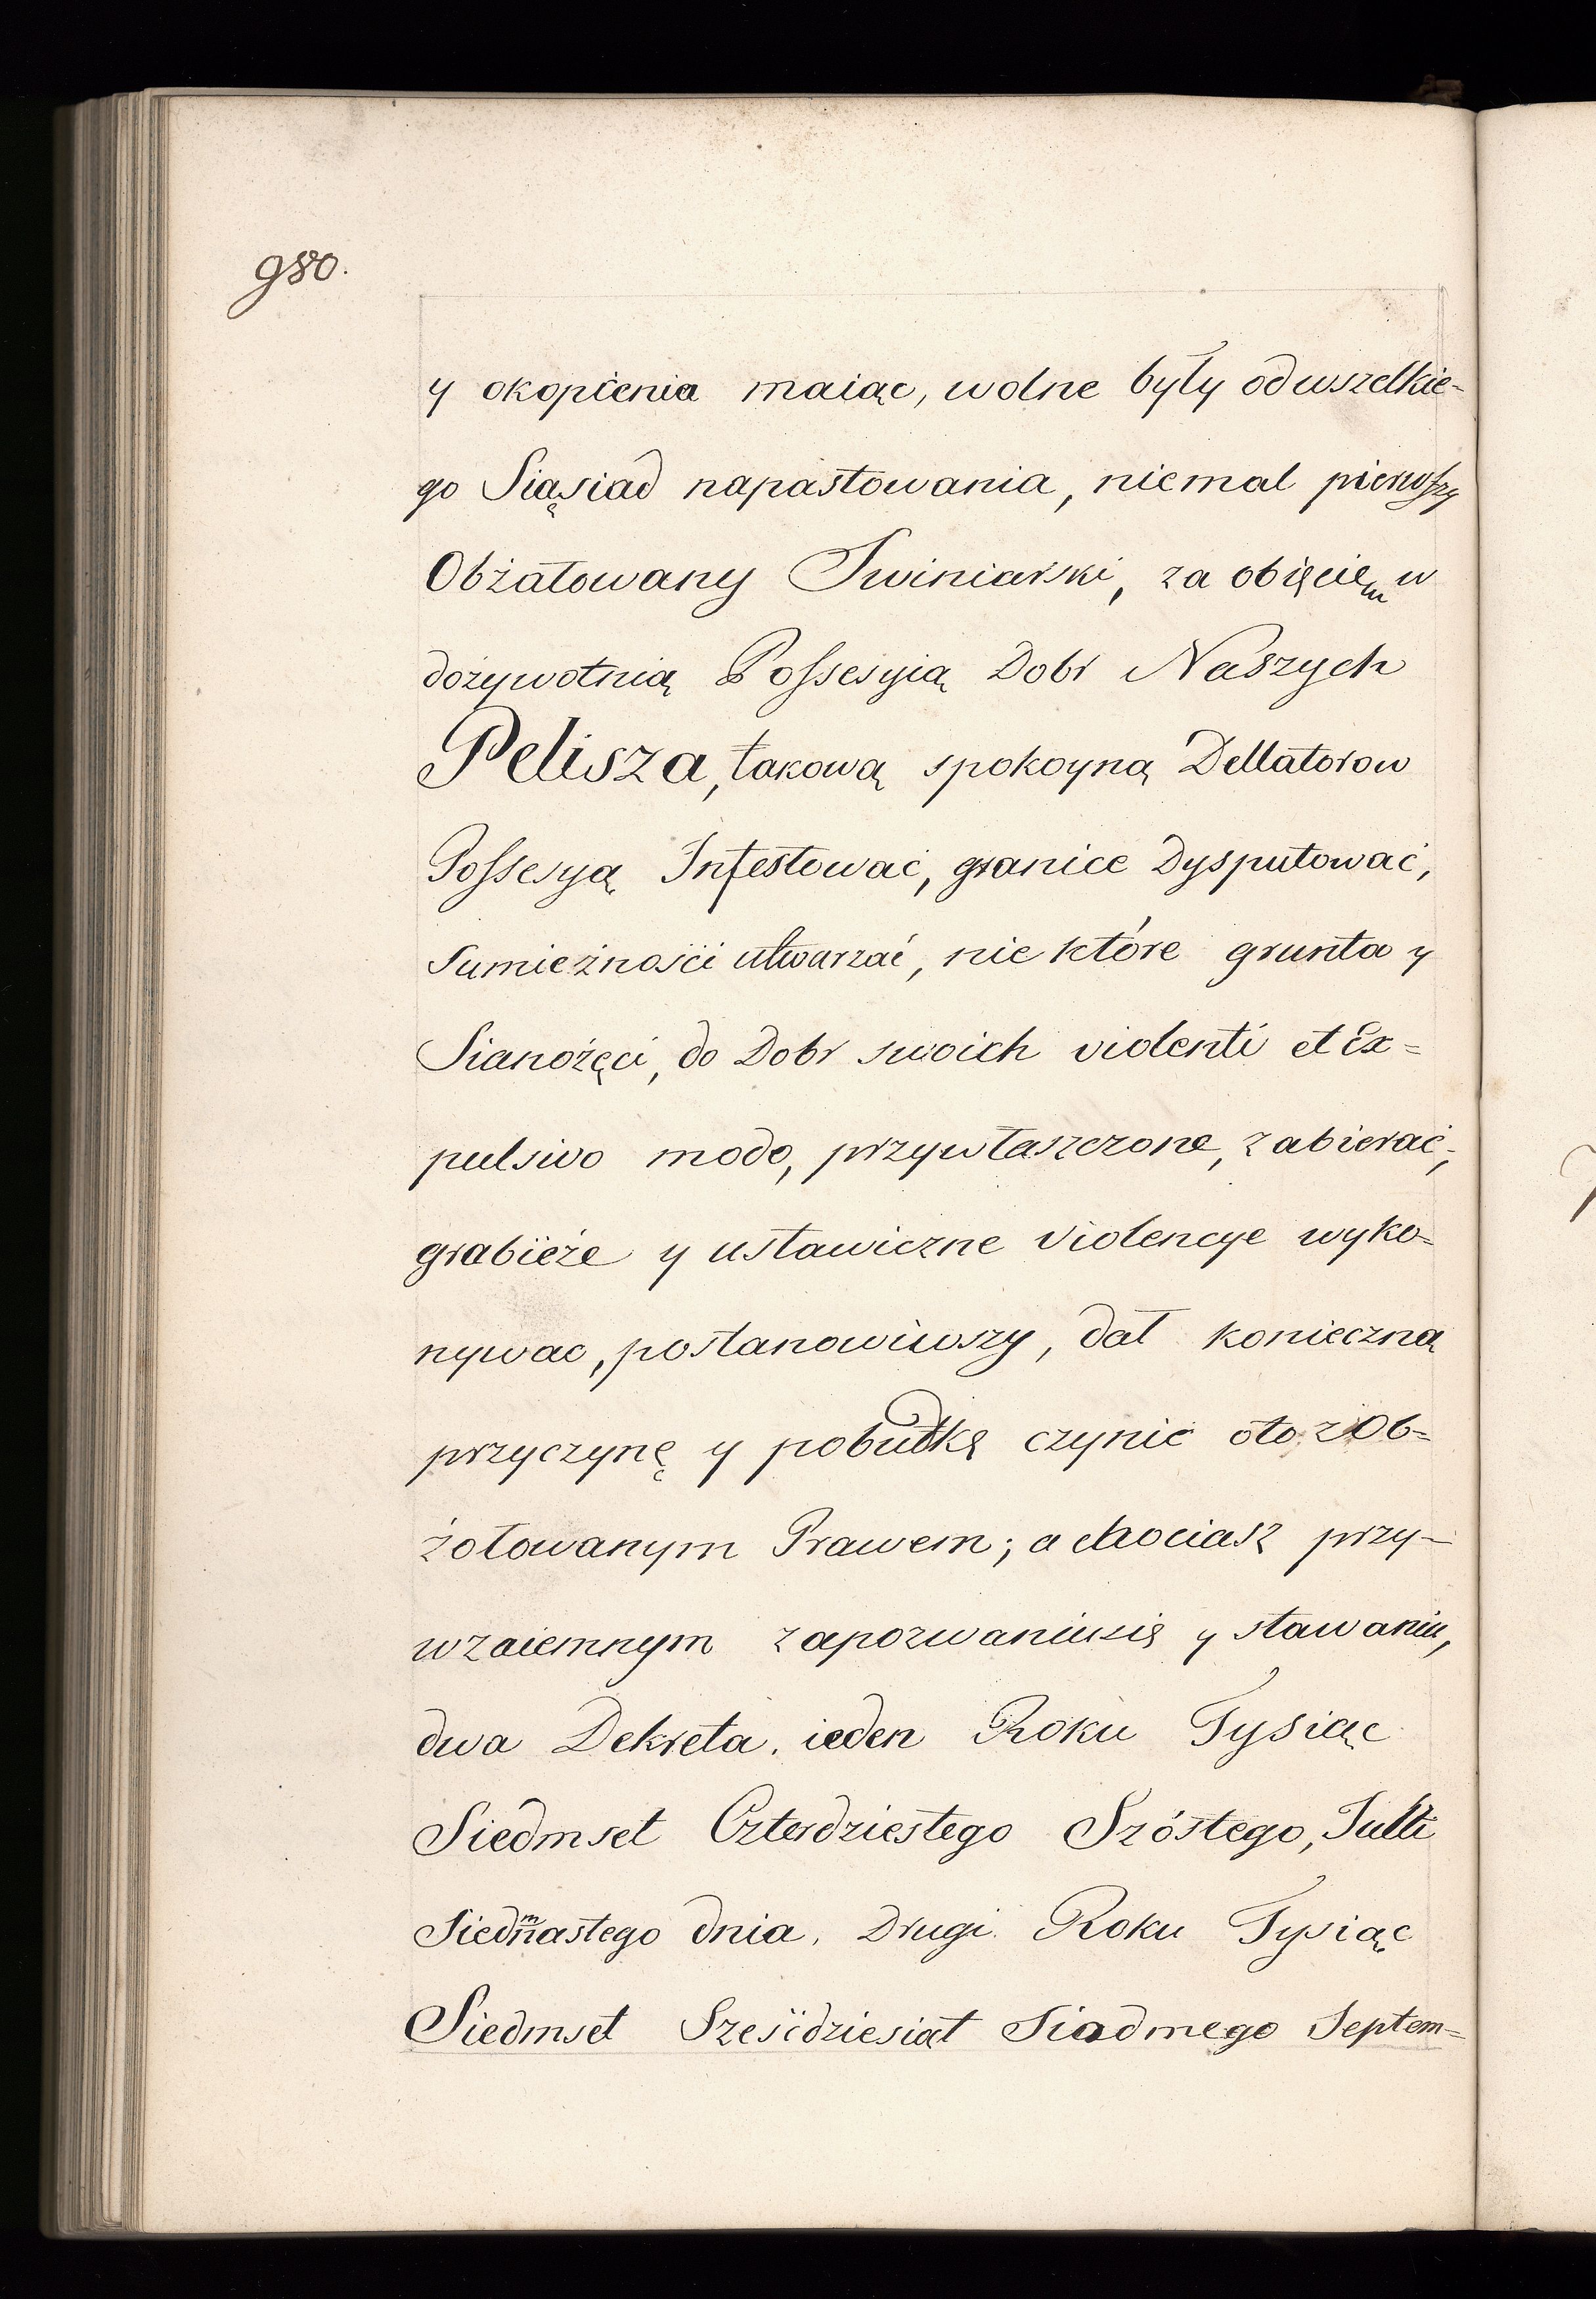 980.
y okopienia maiąc, wolne były od wszelkie-
go Siąsiad napastowania, niemal pierwszy
Obżałowany Swiniarski, za obięciem w
dożywotnią Possesyią Dobr Naszych
Pelisza, takową spokoyną Dellatorow
Possesyą Infestować, granice Dysputować,
sumieżnosci utwarzać, nie które grunta y
Sianożęci, do Dobr swoich violenti et Ex=
pulsivo modo, przywłaszczone, zabierać,
grabieże y ustawiczne violencye wyko=
nywac, postanowiwszy, dał konieczną
przyczynę y pobudkę czynić oto z Ob=
żołowanym Prawem; a chociasz przy-
wzaiemnym zapozwaniusię y stawaniu,
dwa Dekreta. ieden Roku Tysiąc
Siedmset Czterdziestego Szóstego, Julli
Siedmnastego dnia. Drugi. Roku Tysiąc
Siedmset Sześćdziesiąt Siodmego Septem=